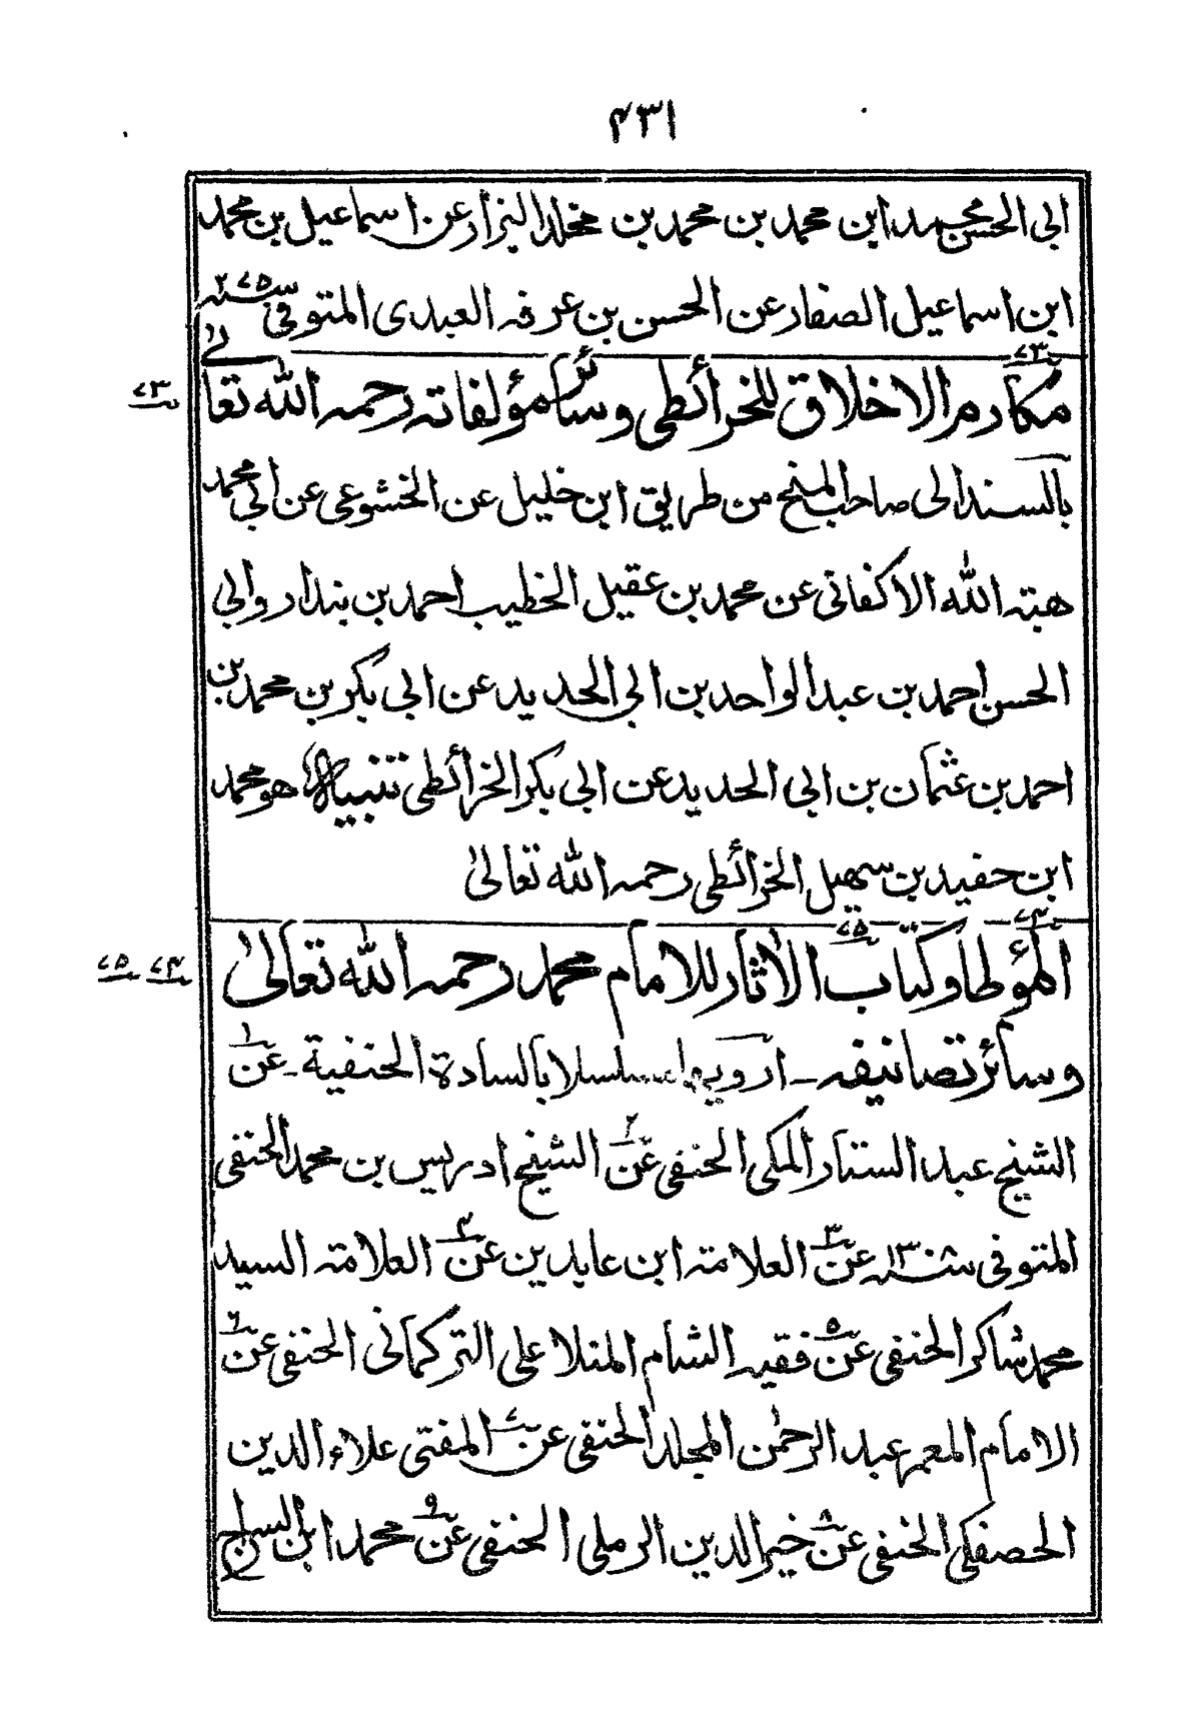 ۴۳۱
ابی الحسن محمد ابن محمد بن محمد بن مخلد البزار عن اسماعیل بن محمد
ابن اسماعیل الصفار عن الحسن بن عرفہ العبدی المتوفی سنہ ۲۷۵
۷۳ ۷۳
مکارم الاخلاق للخرائطی وسائر مؤلفاتہ رحمہ اللہ تعالٰے
بالسند الی صاحب المنح من طریق ابن خلیل عن الخشوعی عن ابی محمد
ھبتہ اللہ الاکفانی عن محمد بن عقیل الخطیب احمد بن بندار وابی
الحسن احمد بن عبد الواحد بن ابی الحدید عن ابی بکر بن محمد بن
احمد بن عثمان بن ابی الحدید عن ابی بکر الخرائطی تنبیہ ھو محمد
ابن حفید بن سھیل الخرائطی رحمہ اللہ تعالیٰ
۷۴ ۷۵ ۷۴ ۷۵
المؤطا وکتاب الاٰثار للامام محمد رحمہ اللہ تعالیٰ
وسائر تصانیفہ ۔ ارویہا مسلسلا بالسادة الحنفیة ۔ عن۱
الشیخ عبد الستار المکی الحنفی عن۲ الشیخ ادریس بن محمد الحنفی
المتوفی سنہ۱۳ عن۳ العلامتہ ابن عابدین عن۴ العلامتہ السید
محمد شاکر الحنفی عن۵ فقیہ الشام المنلا علی الترکمانی الحنفی عن۶
الامام المعمر عبد الرحمٰن المجلد الحنفی عن۷ المفتی علاء الدین
الحصفکی الحنفی عن۸ خیر الدین الرملی الحنفی عن۹ محمد ابن السراج